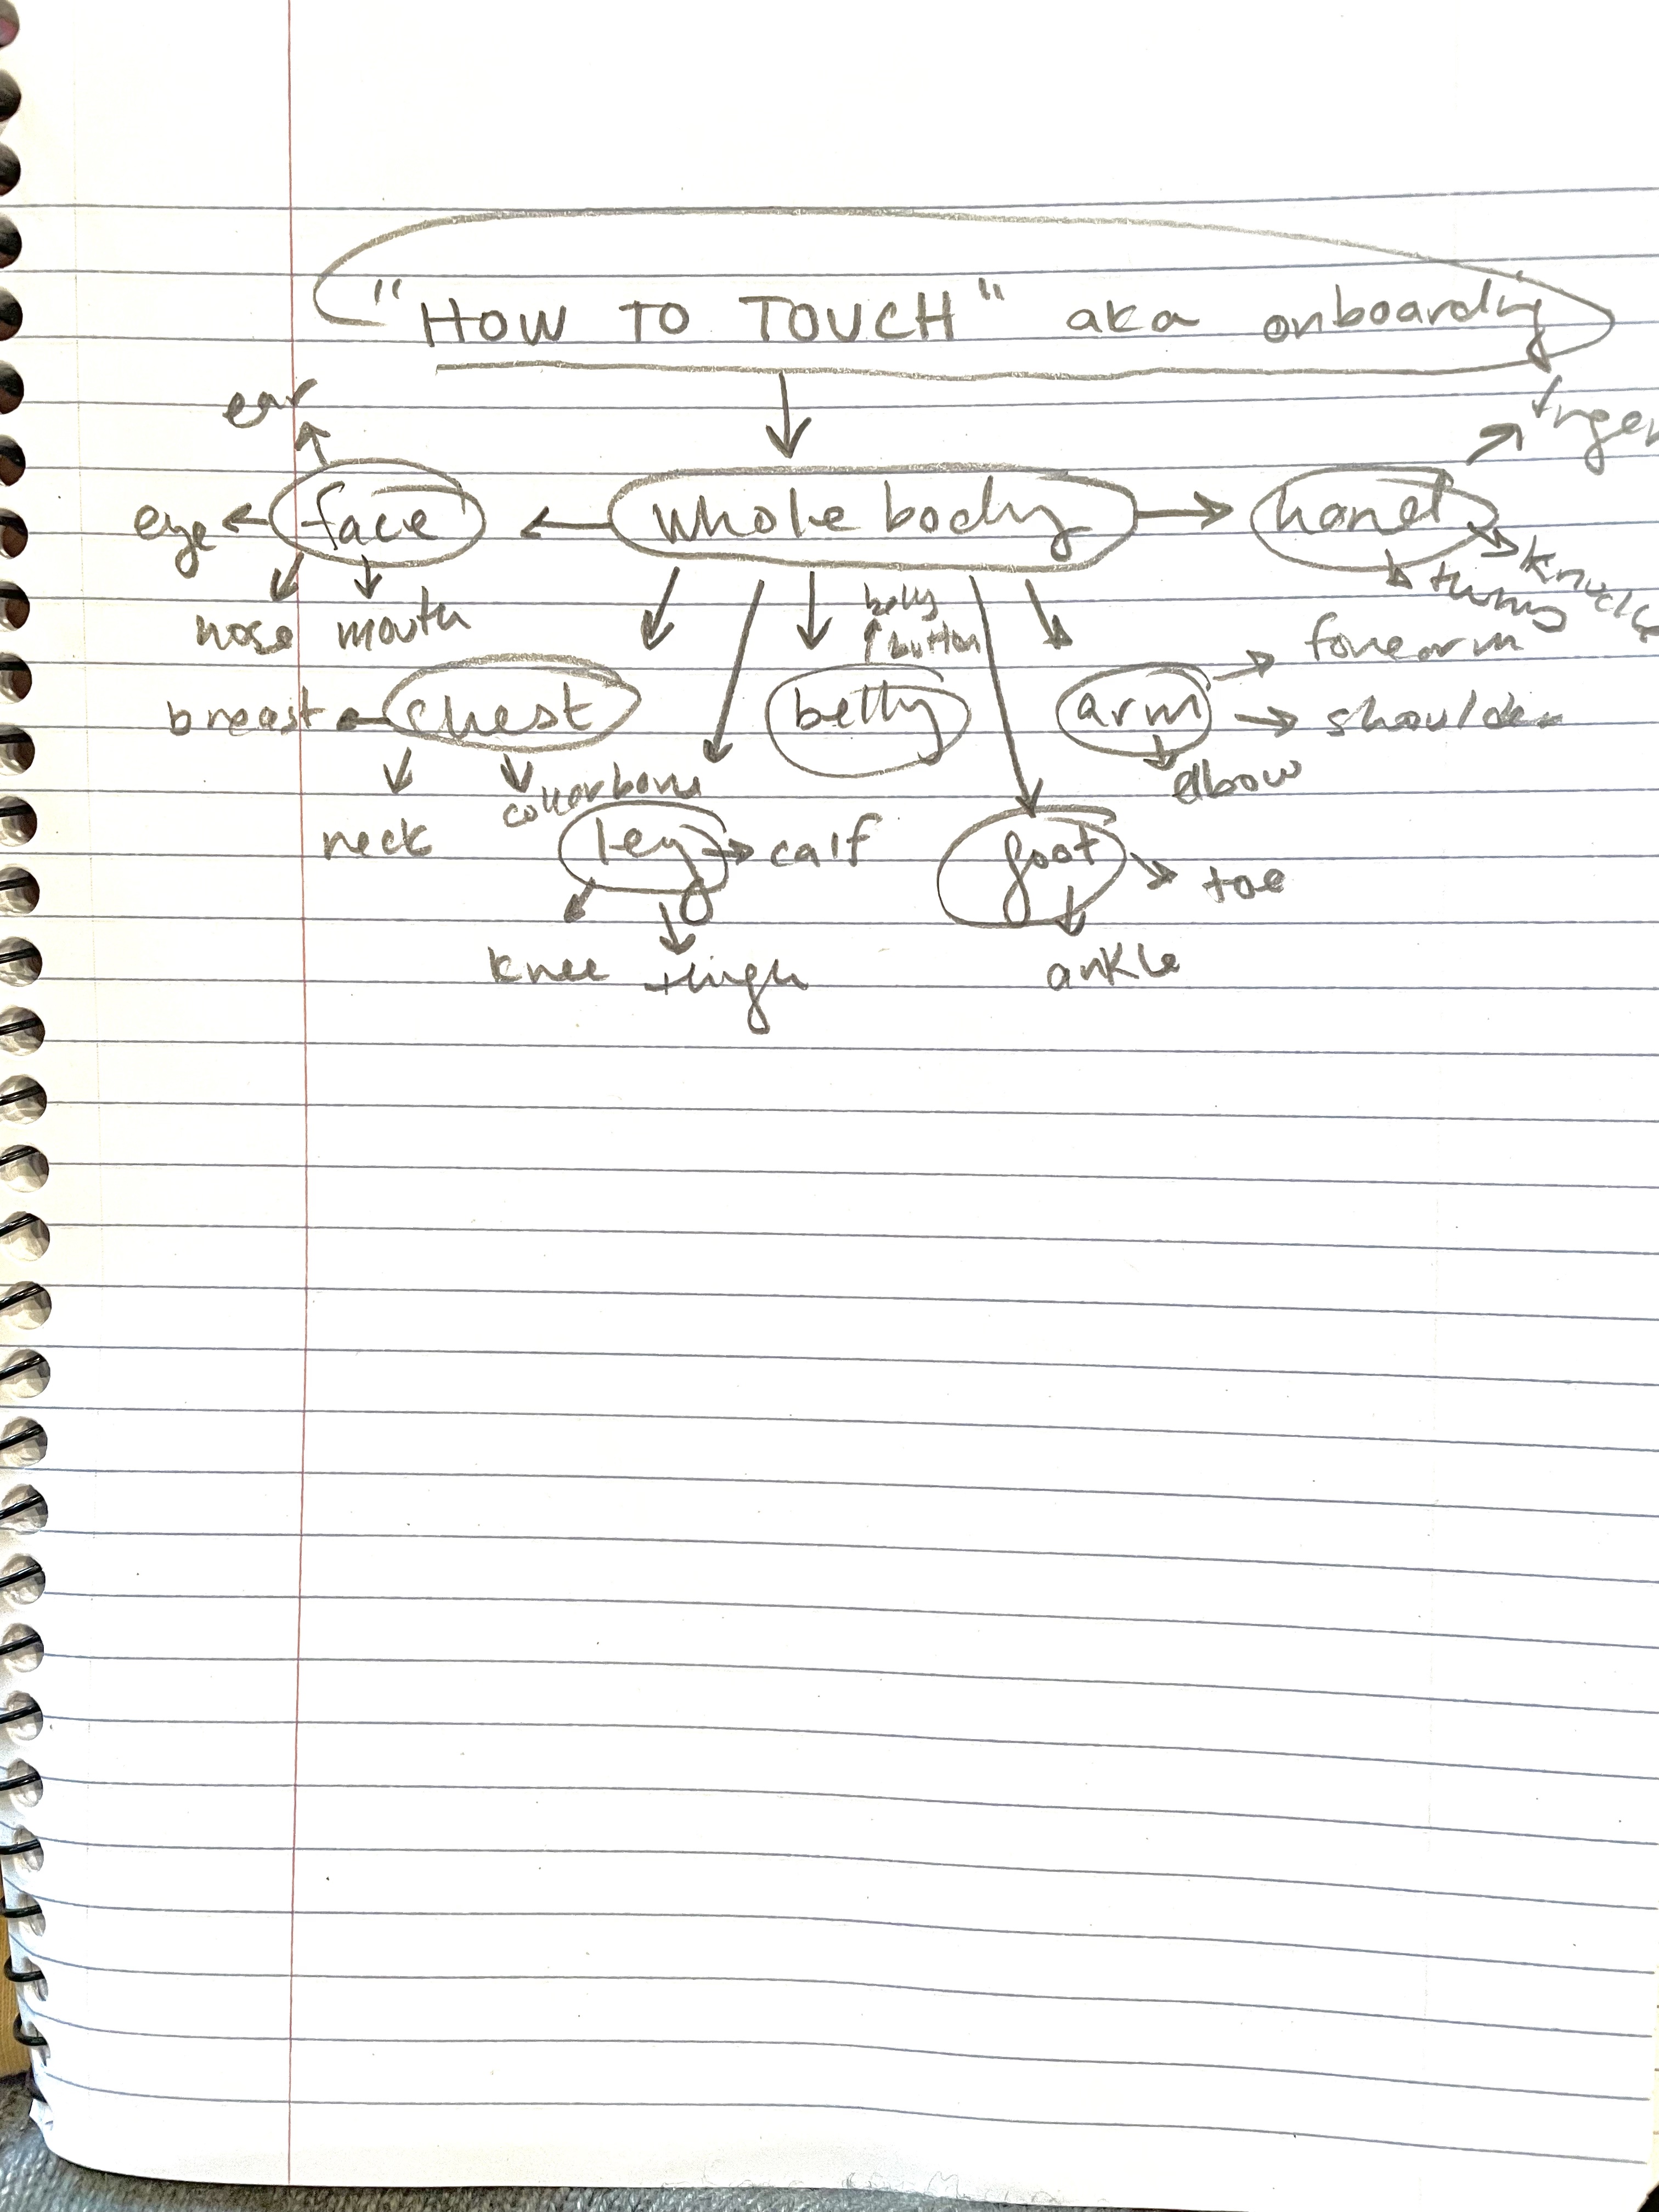 "HOW TO TOUCH" aka onboarding
ear
finger
eye
face
whole body
hand
knuckle
thumb
nose
mouth
belly
button
forearm
breast
chest
belly
arm
shoulder
collarbone
elbow
neck
leg
calf
foot
toe
knee
thigh
ankle